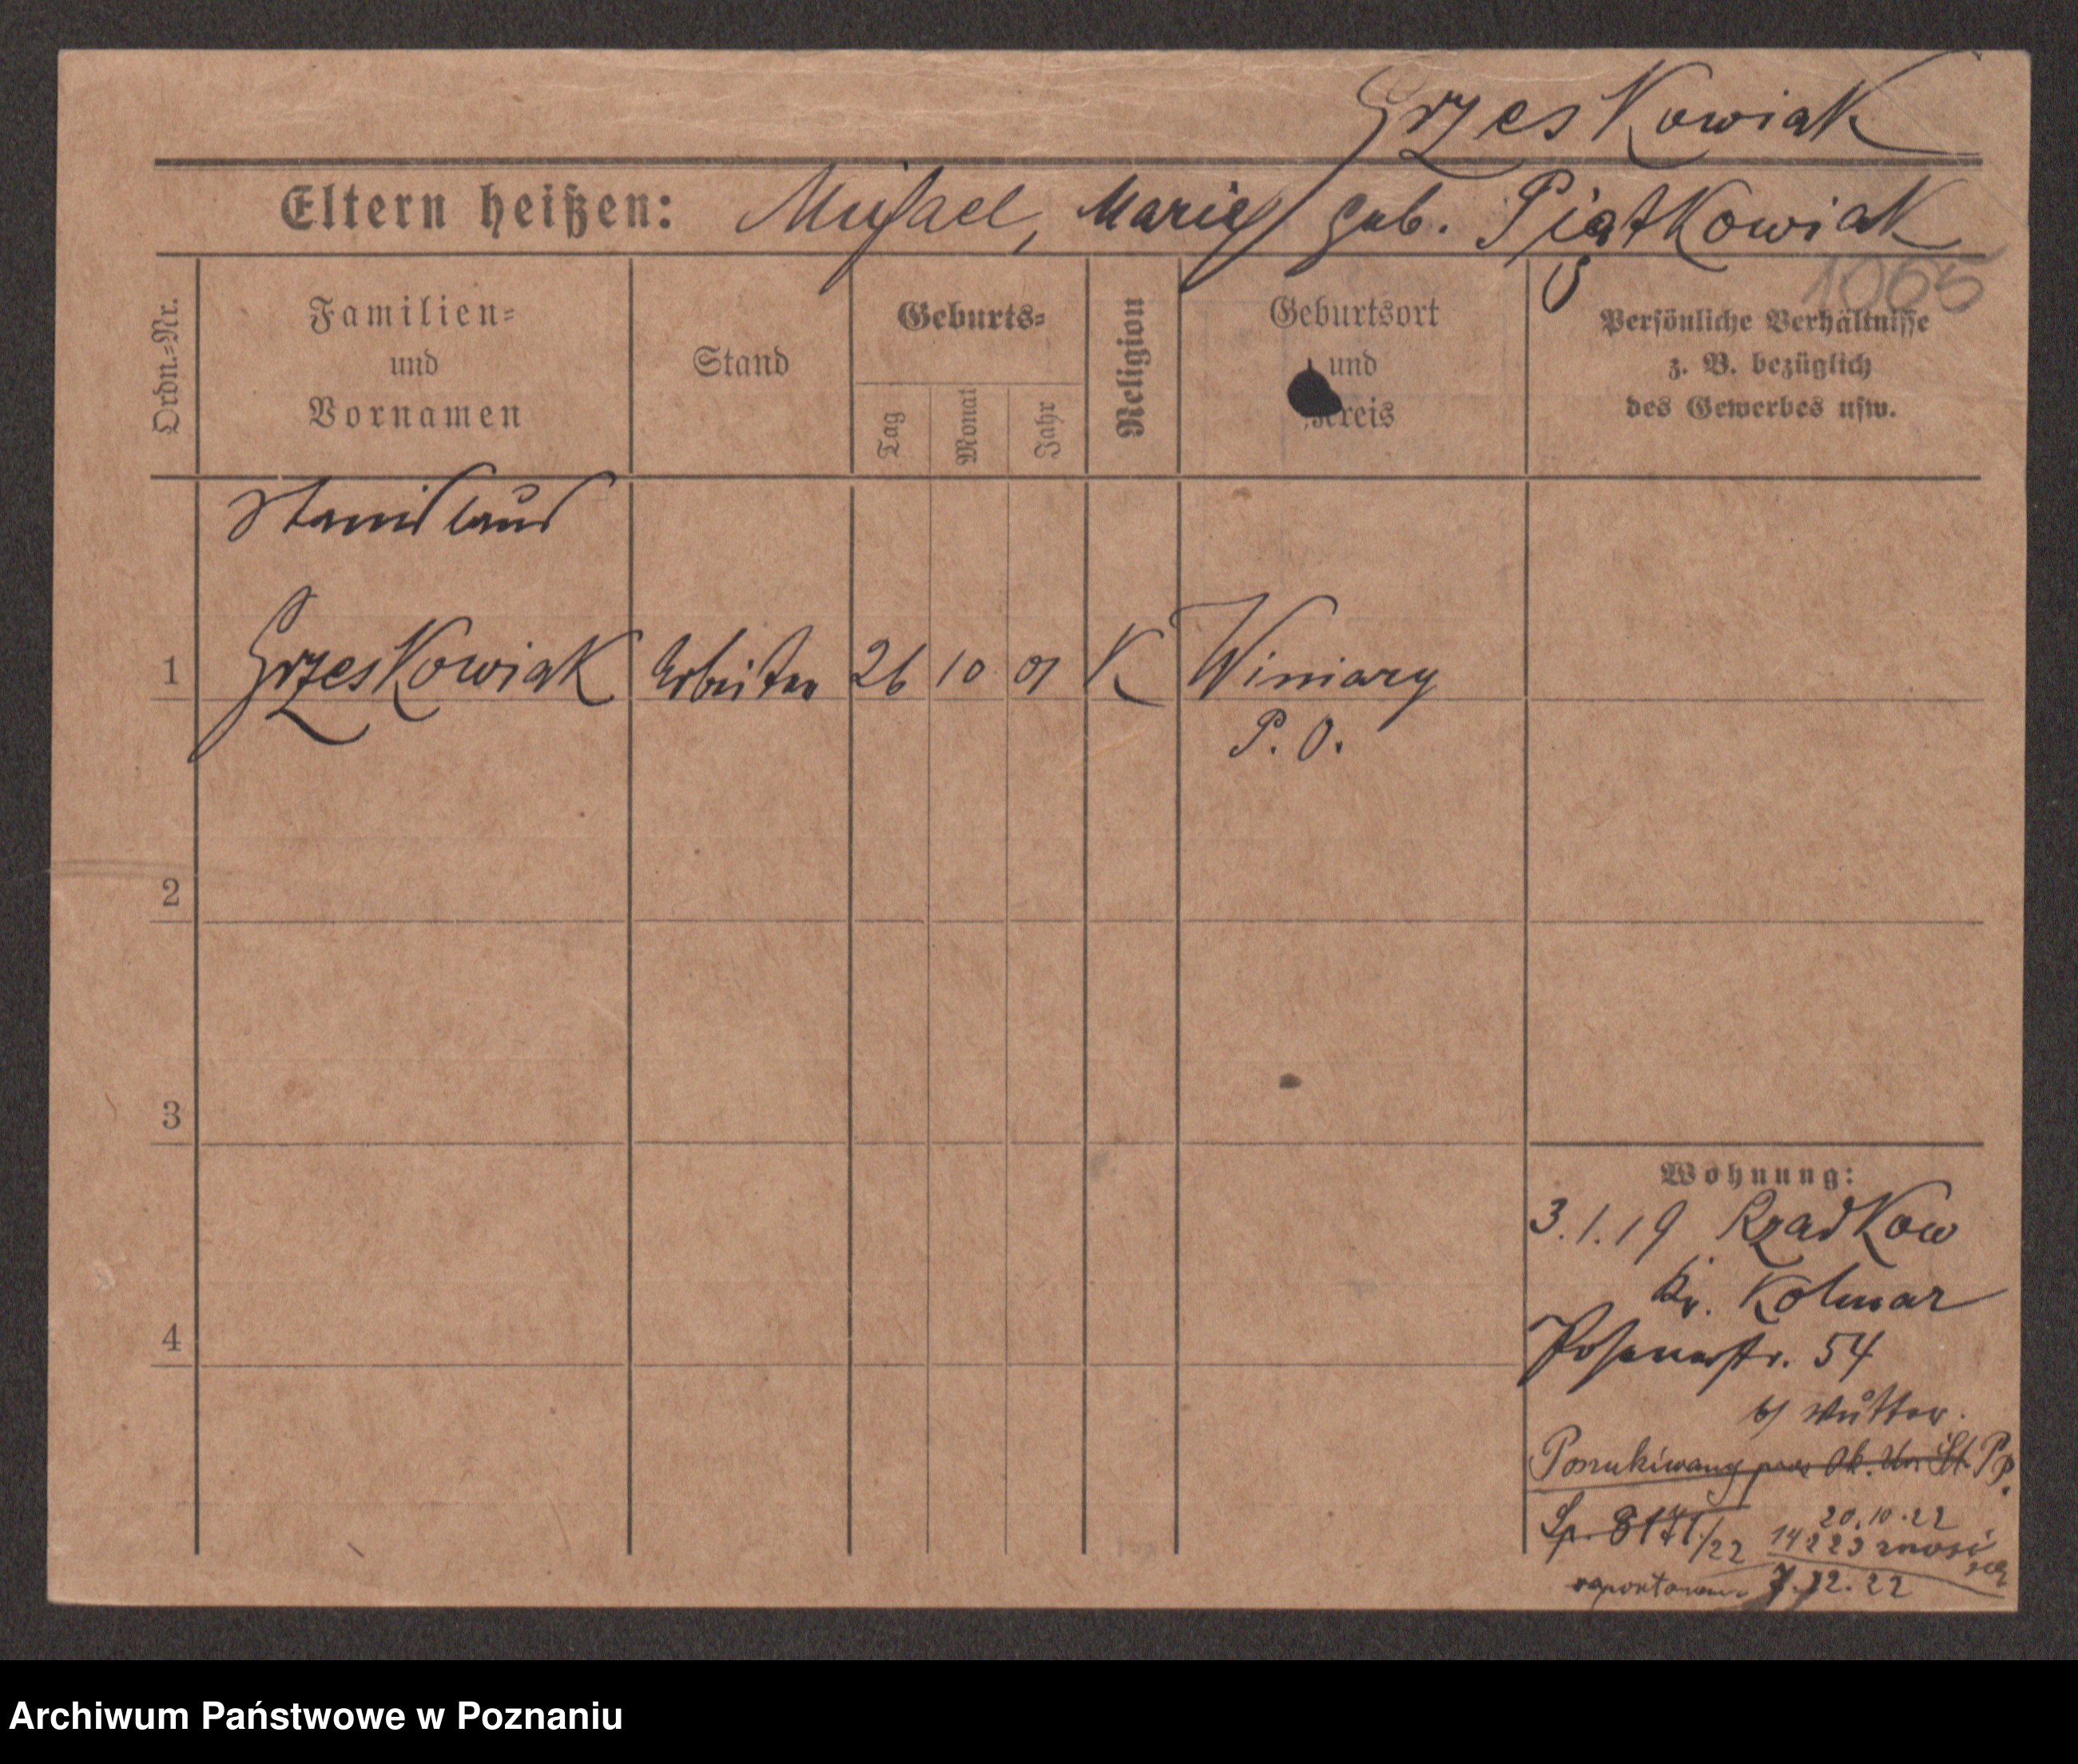 Grzeskowiak
Eltern heißen: Michael, Marie geb. Piątkowiak
1065
Ordn.=Nr.
Familien=
und
Vornamen
Stand
Geburts=
Tag
Monat
Jahr
Religion
Geburtsort
und
Kreis
Persönliche Verhältnisse
z. B. bezüglich
des Gewerbes usw.
Stanislaus
1 Grzeskowiak Arbeiter 26 10 01 K Winiary
P. O.
2
3
4
Wohnung:
3.1.19 Rzadkow
Kr. Kolmar
Posenerstr. 54
b/ Mutter.
Poszukiwany przez
20.10.22
/22 14223 znosi
się
7.12.22
Archiwum Państwowe w Poznaniu